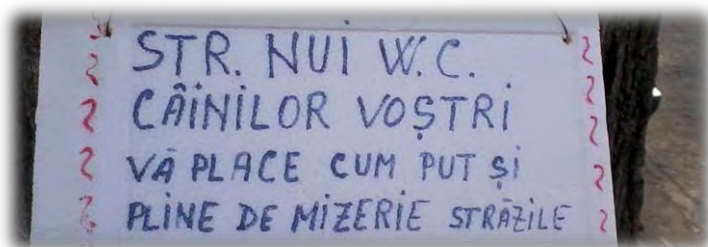 STR. NUI W.C.
CÂINILOR VOȘTRI
VĂ PLACE CUM PUT ȘI
PLINE DE MIZERIE STRĂZILE